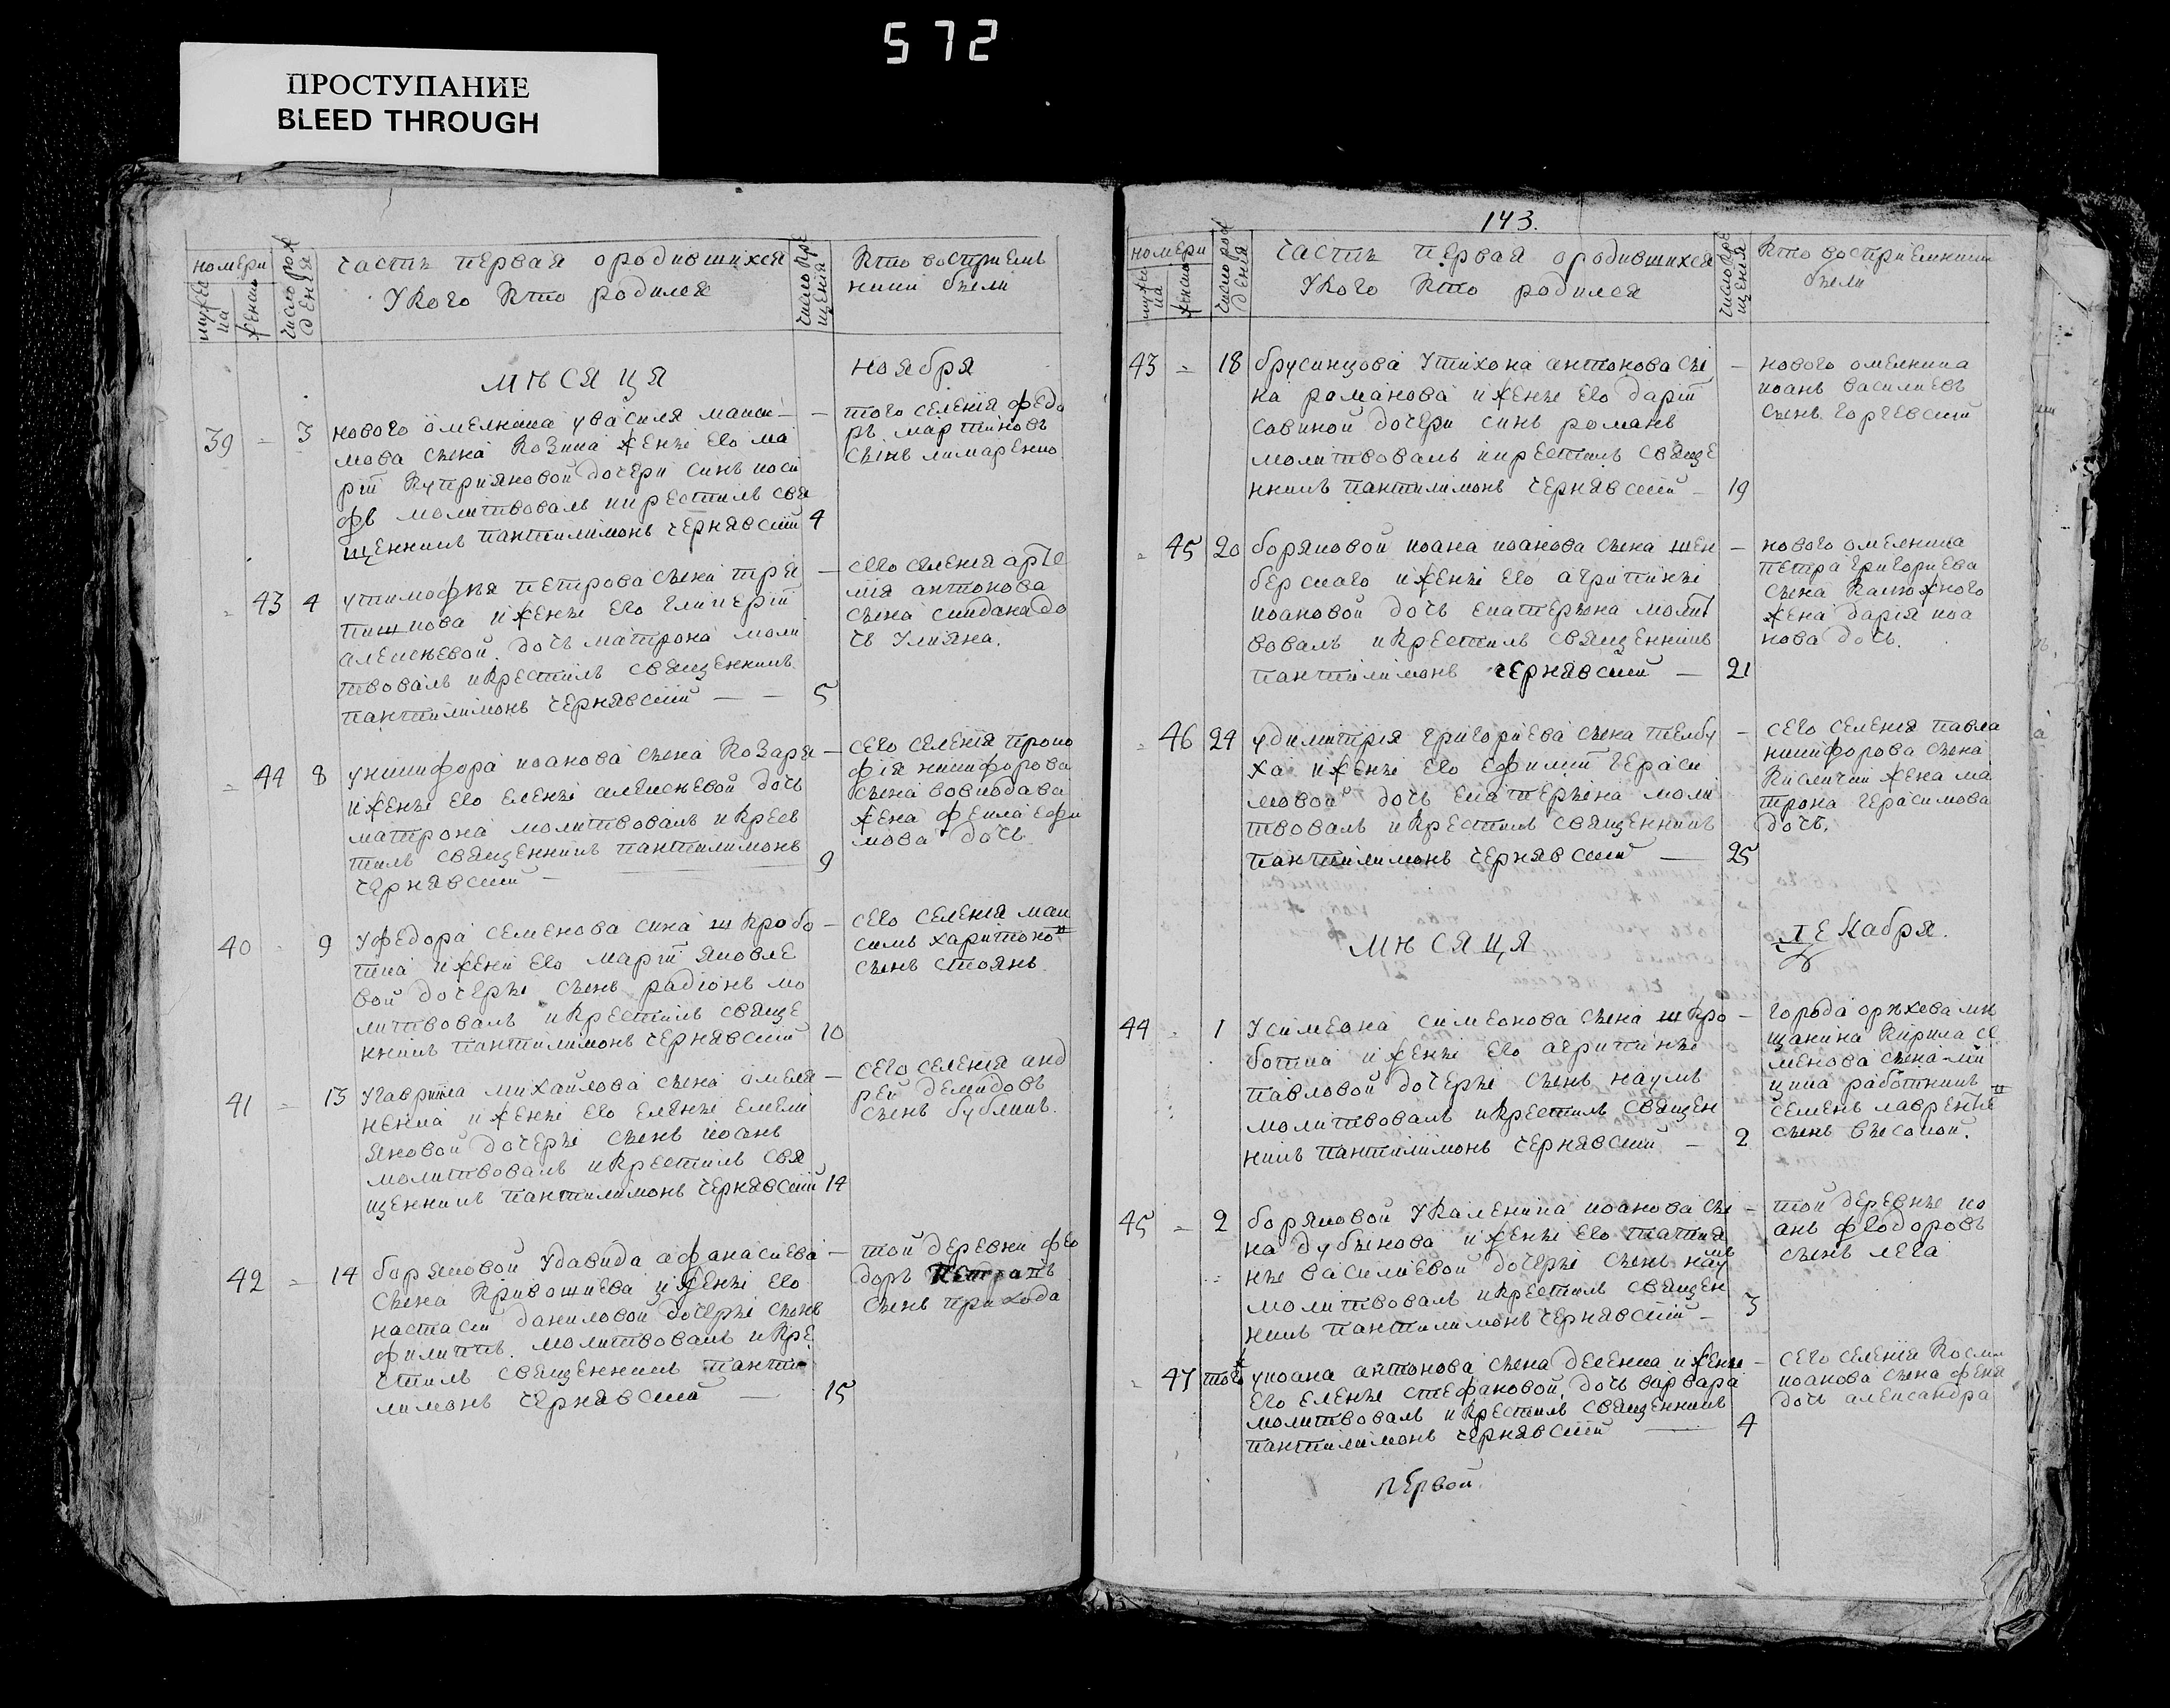 572
ПРОСТУПАНИЕ
BLEED THROUGH
номери
мужеска
женска
число рождения
часть первая о родившихся
У кого кто родился
число крещения
кто восприемниками были
мѣсяця
ноября
39 = 3
нового омелника у василя макси
мова сына козина женѣ его ма
рiи куприяновой дочери синъ иоси
фъ молитвовалъ и крестилъ свя
щенникъ пантилимонъ чернявскiй 4
того селенiя федо
ръ мартиновъ
сынъ лимаренко
= 43 4
у тимофѣя петрова сына тре
и женѣ его гликерiи
алексѣевой дочь матрона моли
твовалъ и крестилъ священникъ
пантилимонъ чернявскiй 5
сего селенiя арте
мiя антонова
сына до
чъ улияна.
= 44 8
у никифора иоанова сына козаря
и женѣ его еленѣ алексѣевой дочь
матрона молитвовалъ и крес
тилъ священникъ пантилимонъ
чернявскiй 9
сего селенiя проко
фiя никифорова
сына вовкодава
жена феклa ефи
мова дочь
40 = 9
у федора семенова сина шкробо
тка и жени его марiи яковле
вой дочеры сынъ радiонъ мо
литвовалъ и крестилъ свяще
нникъ пантилимонъ чернявскiй 10
сего селенiя мак
симъ харитоно
сынъ стоянъ
41 = 13
у гаврила михайлова сына омеля
ненка и женѣ его еленѣ емели
яновой дочеры сынъ иоанъ
молитвовалъ и крестилъ свя
щенникъ пантилимонъ чернявскiй 14
сего селенiя анд
рей демидовъ
сынъ бубликъ.
42 = 14
боряковой у давида афанасиева
сына кривошиева и женѣ его
настасiи даниловой дочеры сынъ
филиппъ. молитвовалъ и кре
стилъ священникъ панти
лимонъ чернявскiй 15
той деревни фео
доръ
сынъ приходa
143.
номери
мужеска
женска
число рождения
часть первая о родившихся
У кого кто родился
число крещения
кто восприемники
были
43 = 18
брусинцова у тихона антонова сы
на романова и женѣ его дарiи
савиной дочери синъ романъ
молитвовалъ и крестилъ свяще
нникъ пантилимонъ чернявскiй 19
нового омелника
иоанъ василиевъ
сынъ горгевскiй
= 45 20
боряковой иоана иоанова сына шен
берскаго и женѣ его агрипинѣ
иоановой дочь екатерына молит
вовалъ и крестилъ священникъ
пантилимонъ чернявскiй 21
нового омелника
петра григориева
сына калюжного
жена дария иоа
нова дочь.
= 46 24
у димитрiя григориева сына телбу
ха и женѣ его ефимiи гераси
мовой дочь екатерына моли
твовалъ и крестилъ священникъ
пантилимонъ чернявскiй 25
сего селения павла
никифорова сына
кислички жена ма
трона герасимова
дочь.
мѣсяця
декабря.
44 = 1
у симеона симеонова сына шкро
ботка и женѣ его агрипинѣ
павловой дочеры сынъ наумъ
молитвовалъ и крестилъ священ
никъ пантилимонъ чернявскiй 2
города орѣхева мѣ
щанина кирила се
менова сына
работникъ
семенъ лаврентие
сынъ высокой.
45 = 2
боряковой у каленика иоанова сы
на дубынова и женѣ его татия
нѣ василиевой дочеры сынъ наумъ
молитвовалъ и крестилъ священ
никъ пантилимонъ чернявскiй 3
той деревнѣ ио
анъ феодоровъ
сынъ лега
= 47 тогожъ
у иоана антонова сына деленка и женѣ
его еленѣ стефановой, дочь варвара
молитвовалъ и крестилъ священникъ
пантилимонъ чернявскiй 4
сего селения косми
иоанова сына феня
дочь александра
первой.